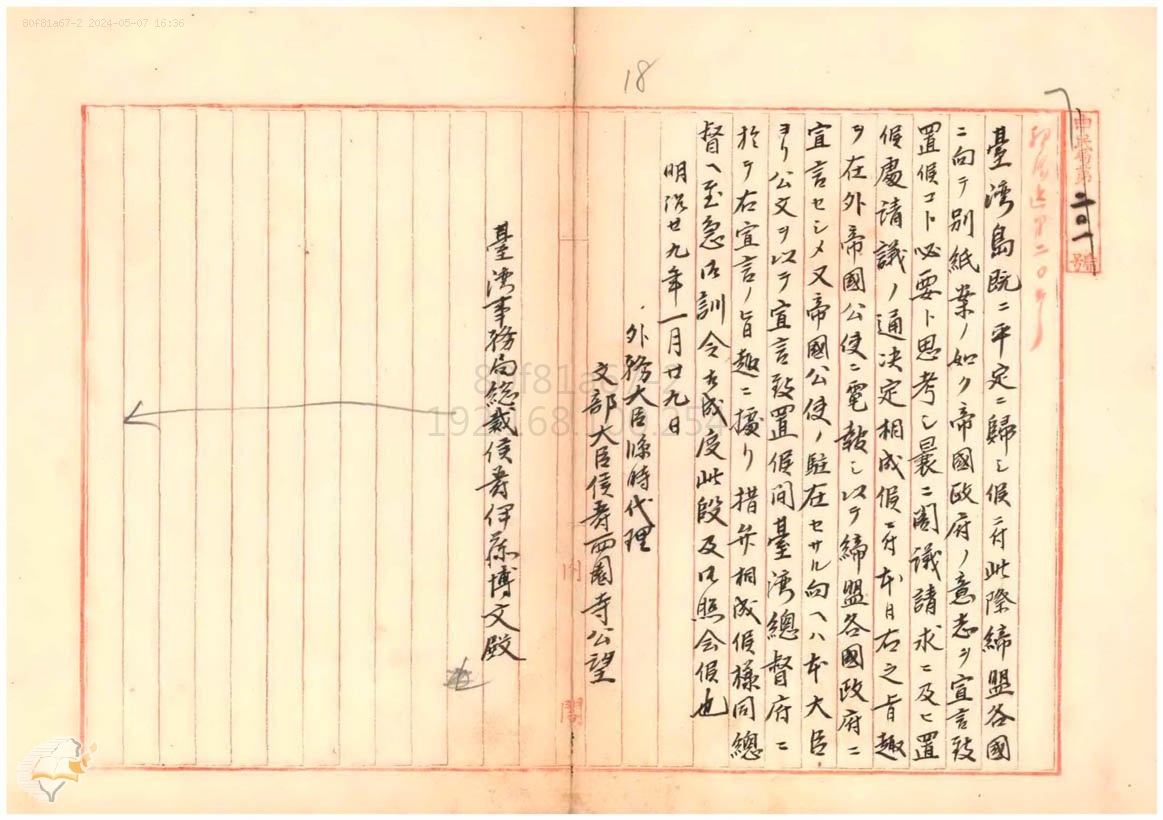 80f81a67-2 2024-05-07 16:36
18
第二〇一號
臺灣島既ニ平定ニ歸シ候ニ付此際締盟各國
ニ向テ別紙案ノ如ク帝國政府ノ意志ヲ宣言致
置候コト必要ト思考シ曩ニ閣議請求ニ及ヒ置
候處請議ノ通決定相成候ニ付本日右之旨趣
ヲ在外帝國公使ニ電報シ以テ締盟各國政府ニ
宣言セシメ又帝國公使ノ駐在セサル向ヘハ本大臣
ヨリ公文ヲ以テ宣言致置候間臺灣總督府ニ
於テ右宣言ノ旨趣ニ據リ措弁相成候樣同總
督ヘ至急御訓令相成度此段及御照会候也
明治廿九年一月廿九日
外務大臣臨時代理
文部大臣侯爵西園寺公望
臺灣事務局総裁侯爵伊藤博文殿
内閣
80f81a67-2
192.168.100.254